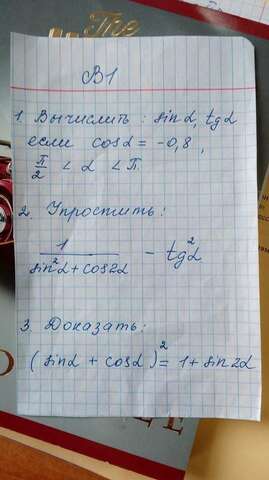 The
В1
1. Вычислить: sinα, tgα
если cosα = -0,8,
π/2 < α < π.
2. Упростить:
1/(sin²α + cos2α) - tg²α
3. Доказать:
(sinα + cosα)² = 1 + sin2α